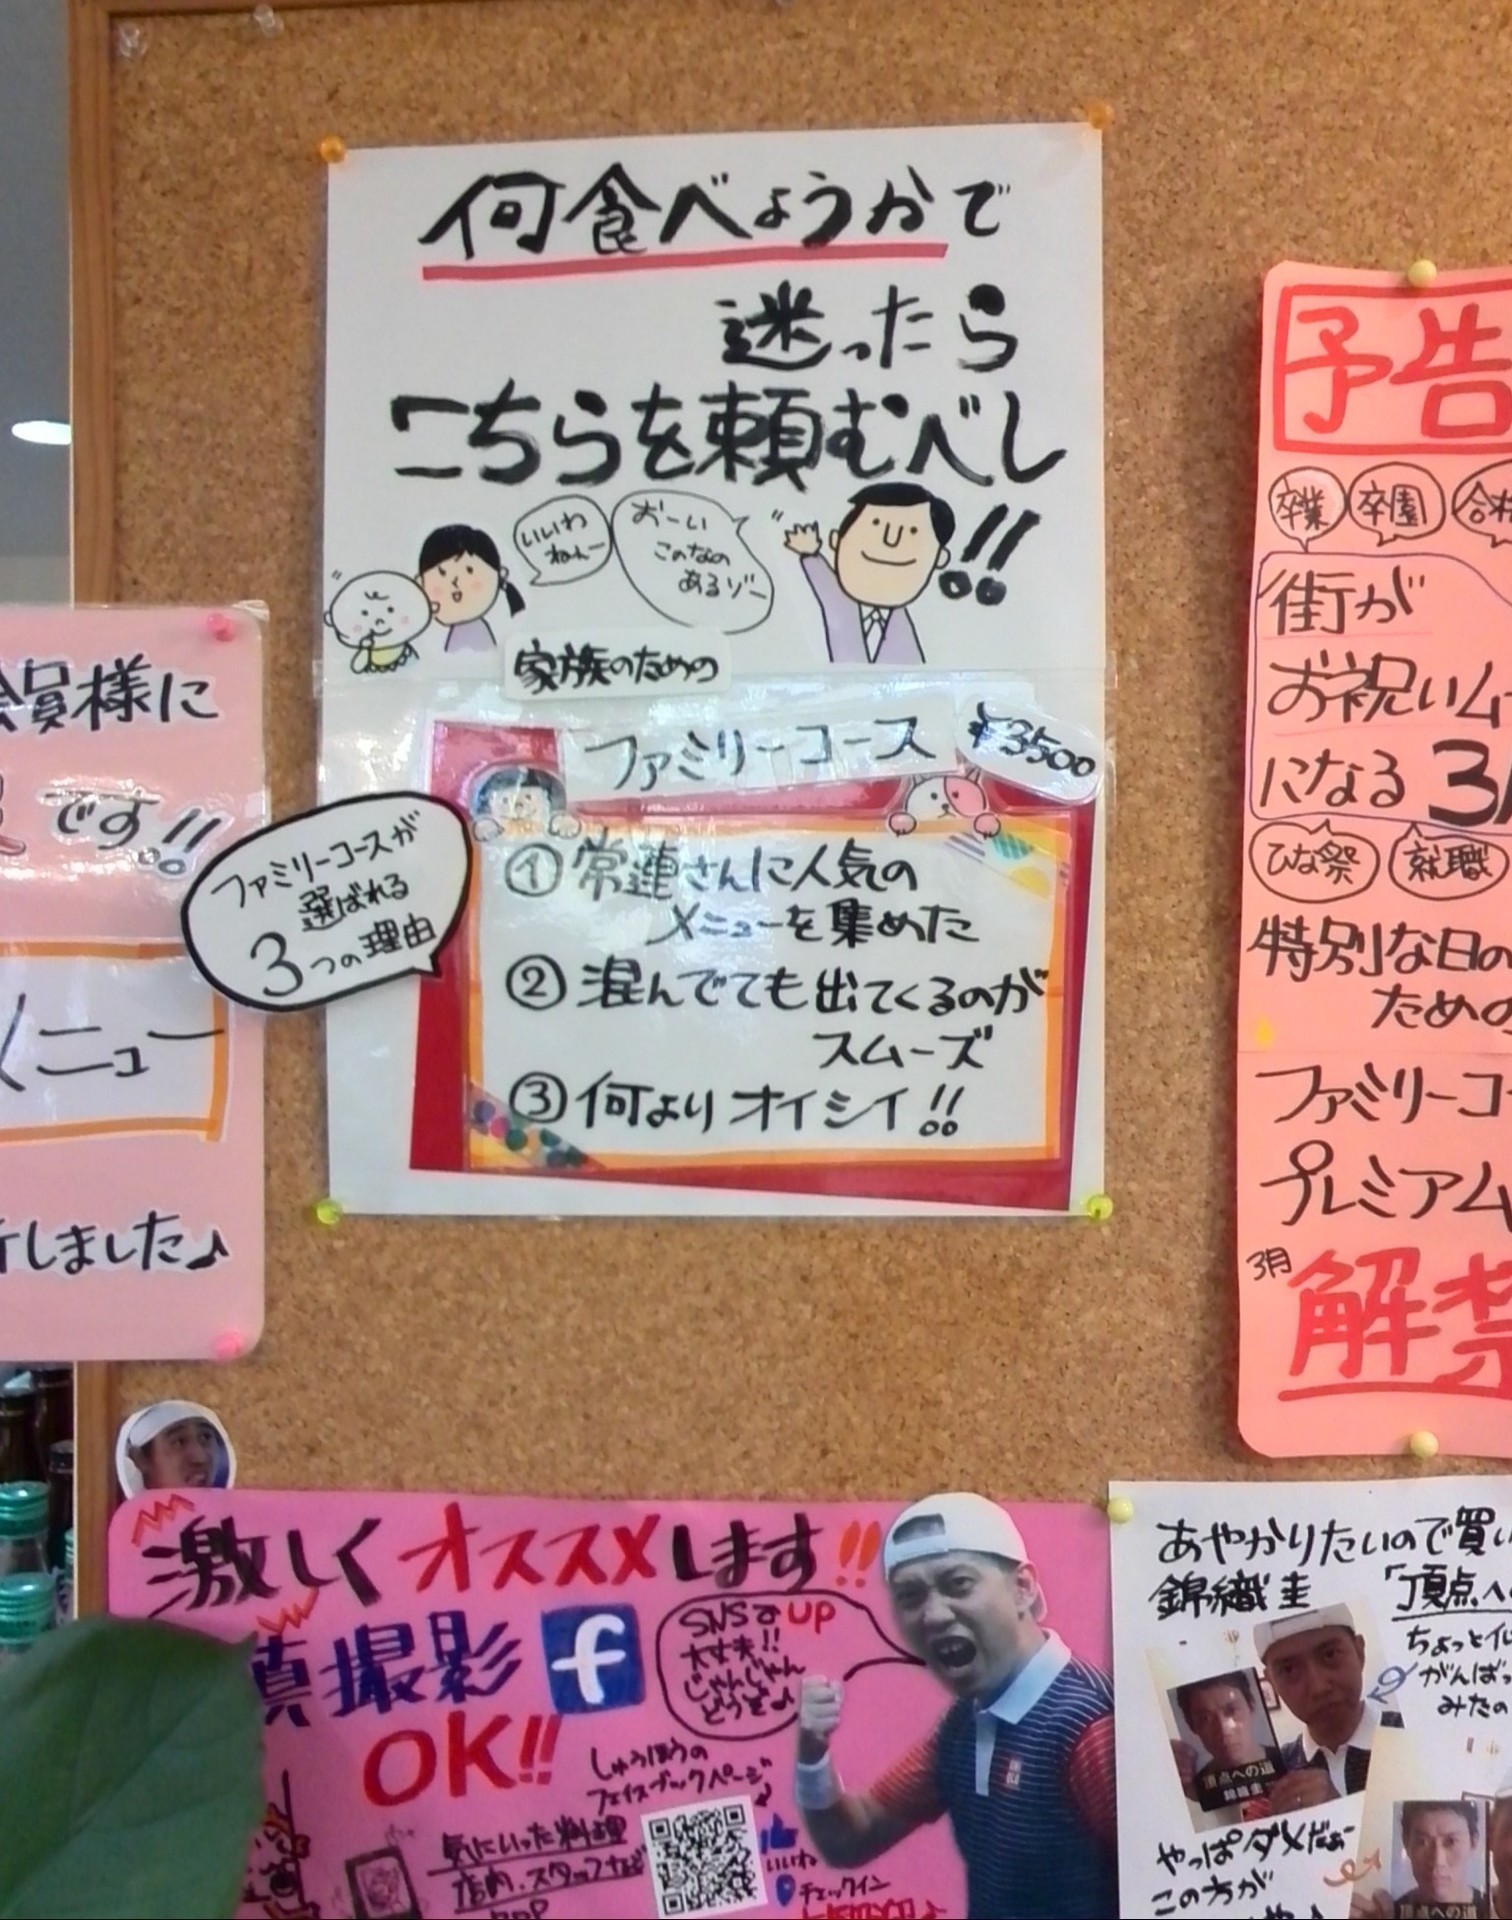 何食べようかで
迷ったら
こちらを頼むべし!!
いいわ
ねぇー
おーい
このなの
あるゾー
家族のための
ファミリーコース ¥3500
ファミリーコースが
選ばれる
3つの理由
①常連さんに人気の
メニューを集めた
②混んでても出てくるのが
スムーズ
③何よりオイシイ!!
会員様に
です!!
メニュー
しました♪
予告
卒業 卒園 合格
街が
お祝いム
になる3月
ひな祭 就職
特別な日の
ための
ファミリーコー
プレミアム
3月
解禁
激しくオススメします!!
真撮影 f
OK!!
SNSでUP
大丈夫!!
じゃんじゃん
どうぞ♪
しゅうほうの
フェイスブックページ
気にいった料理
店内、スタッフなど
いいね
チェックイン
あやかりたいので買い
錦織圭 「頂点へ
ちょっと似
がんばっ
みたの
頂点への道
錦織圭
やっぱダメだぁー
この方が
頂点への道